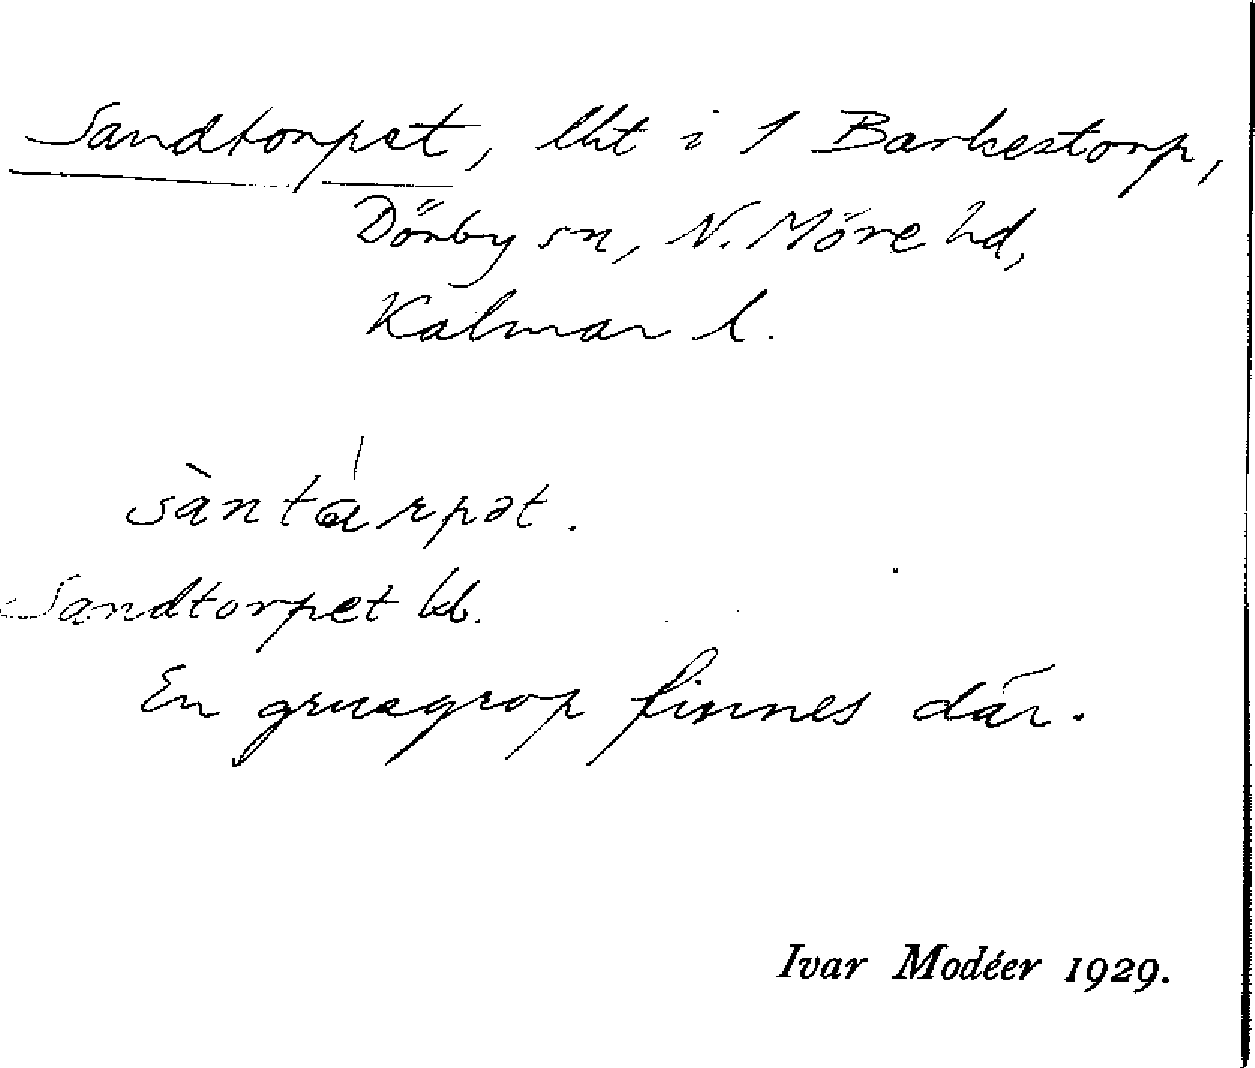 Sandtorpet, lht i 1 Barkestorp,
Dörby sn, N. Möre hd,
Kalmar l.
sàntárpət.
Sandtorpet kb.
En grusgrop finnes där.
Ivar Modéer 1929.